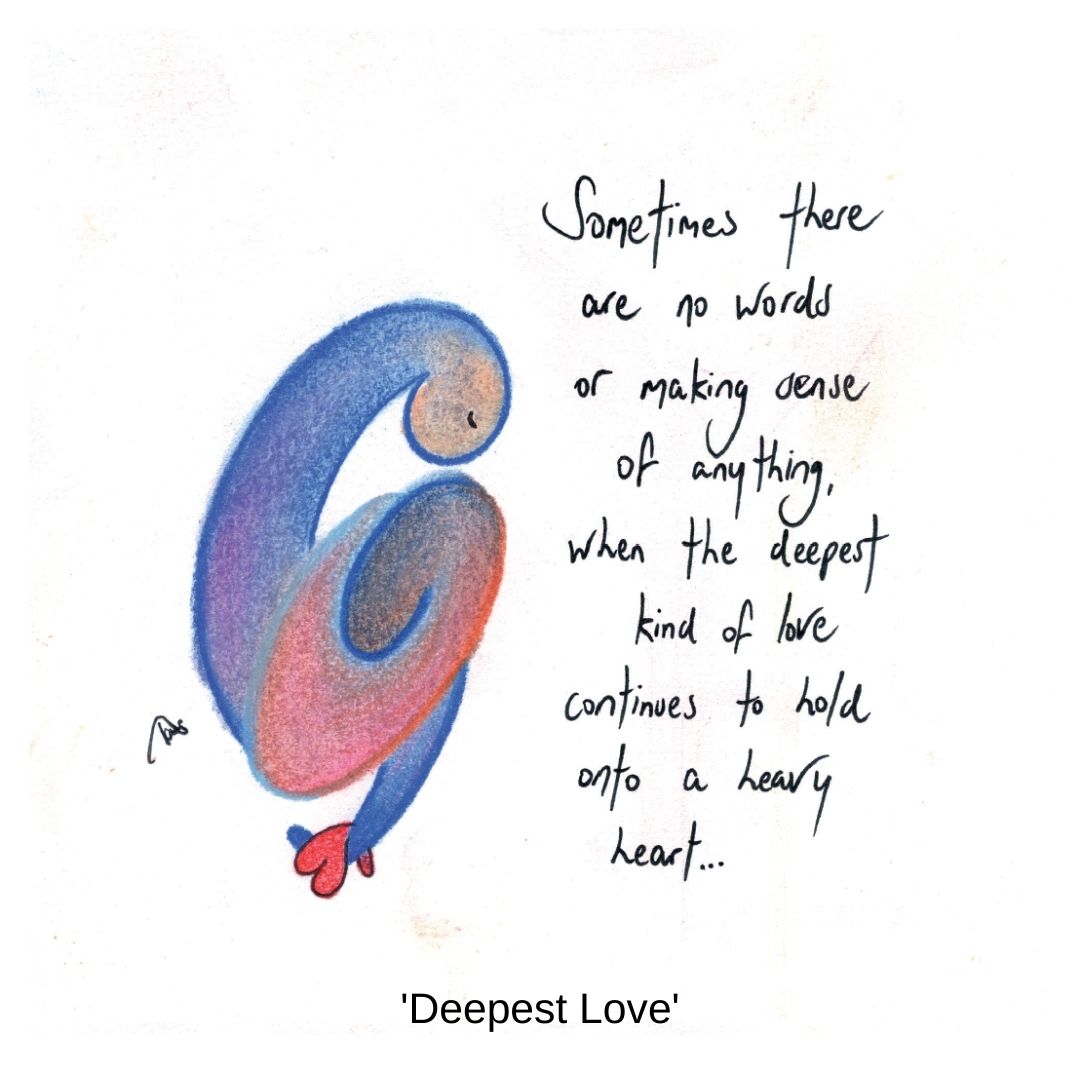 Sometimes there
are no words
or making sense
of anything,
when the deepest
kind of love
continues to hold
onto a heavy
heart...
'Deepest Love'